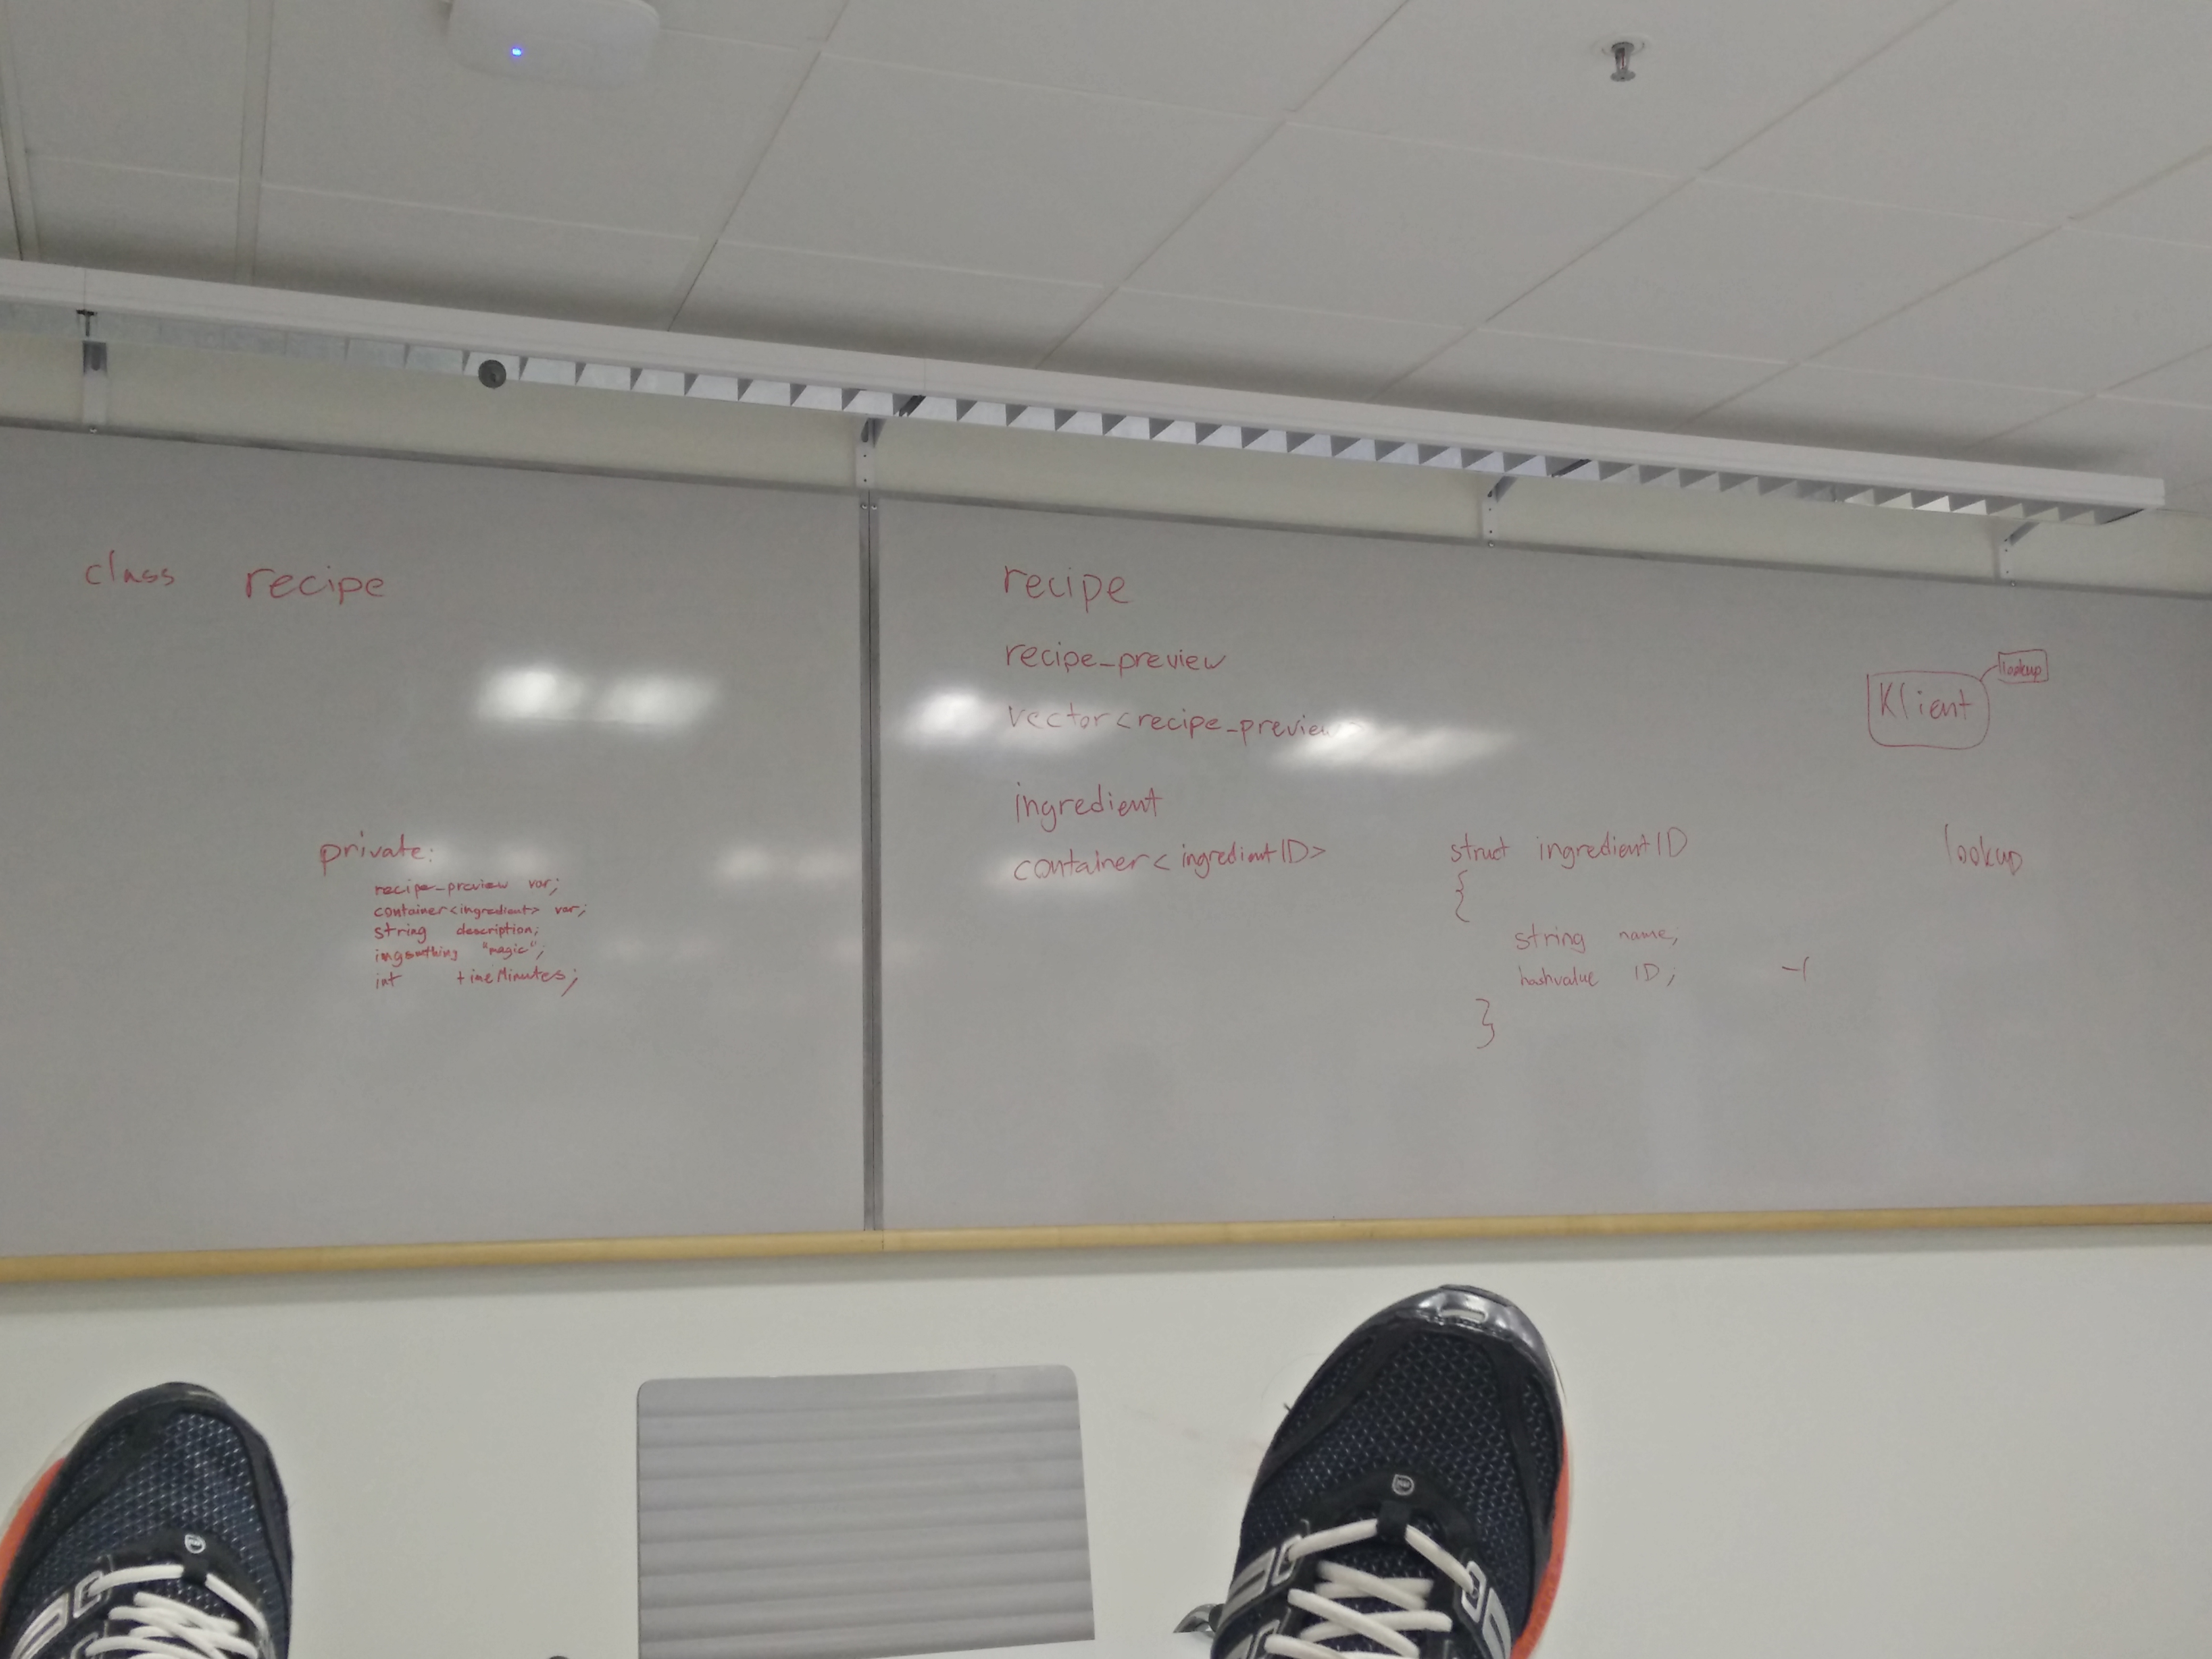 class recipe
private:
recipe_preview var;
container<ingredient> var;
string description;
ingsomthing "magic";
int timeMinutes;
recipe
recipe_preview
vector<recipe_preview>
ingredient
container<ingredientID>
struct ingredientID
{
string name;
hashvalue ID;
}
-1
Klient
lookup
lookup